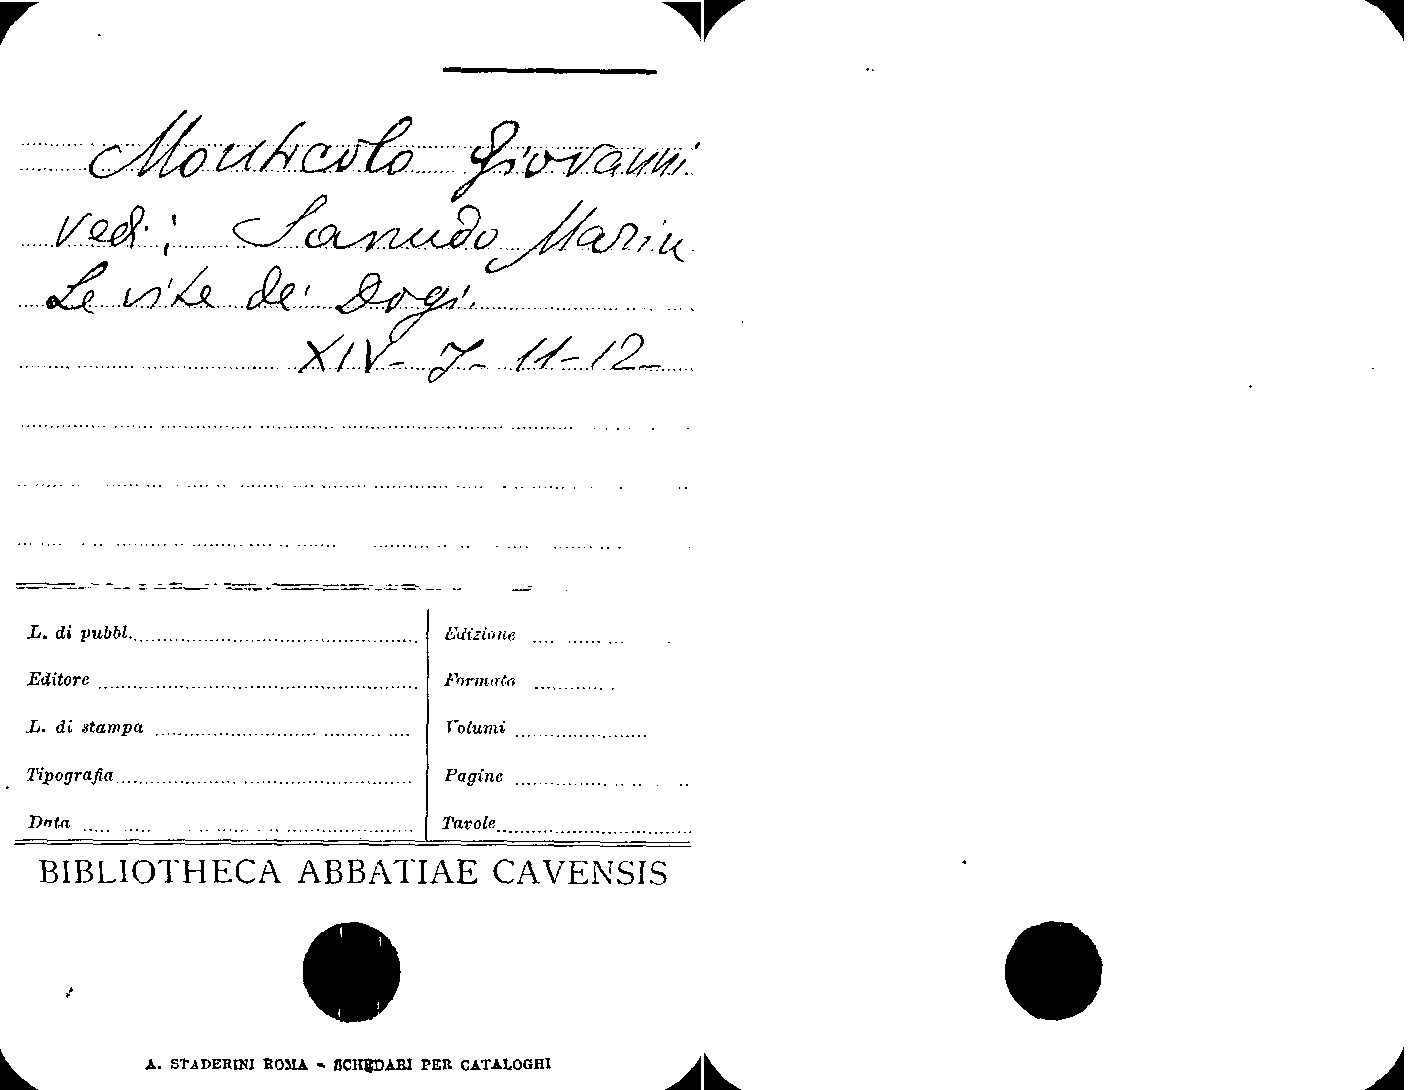 Monticolo Giovanni
vedi: Sanudo Marin
Le vite dei Dogi.
XIV- J- 11-12-
L. di pubbl.
Edizione
Editore
Formato
L. di stampa
Volumi
Tipografia
Pagine
Data
Tavole
BIBLIOTHECA ABBATIAE CAVENSIS
A. STADERINI ROMA - SCHEDARI PER CATALOGHI